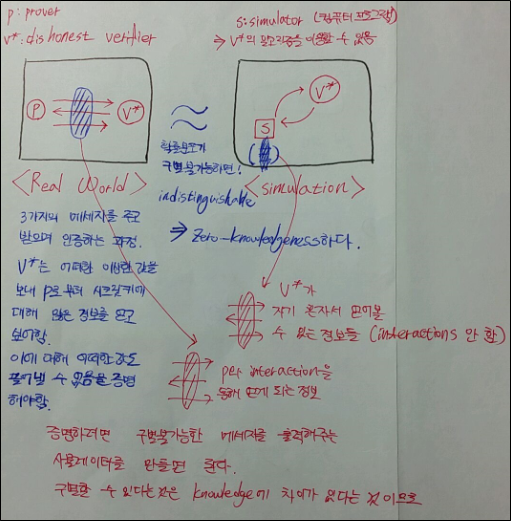 p : prover
V* : dishonest verifier
S : simulator (컴퓨터 프로그램)
⇒ V*의 알고리즘을 이용할 수 있음
P
V*
V*
S
≈
확률분포가
구별불가능하면!
indistinguishable
<Real World>
<simulation>
⇒ Zero-knowledgeness하다.
3가지의 메세지를 주고
받으며 인증하는 과정.
V*는 어떠한 이상한 값을
보내 P로부터 시크릿키에
대해 많은 정보를 얻고
싶어함.
이에 대해 어떠한 값도
얻어낼 수 없음을 증명
해야함.
V*가
자기 혼자서 얻어낼
수 있는 정보들 (interactions 안 함)
per interaction을
통해 얻게 되는 정보
증명하려면 구별불가능한 메세지를 출력해주는
시뮬레이터를 만들면 된다.
구별할 수 있다는것은 knowledge에 차이가 있다는 것이므로